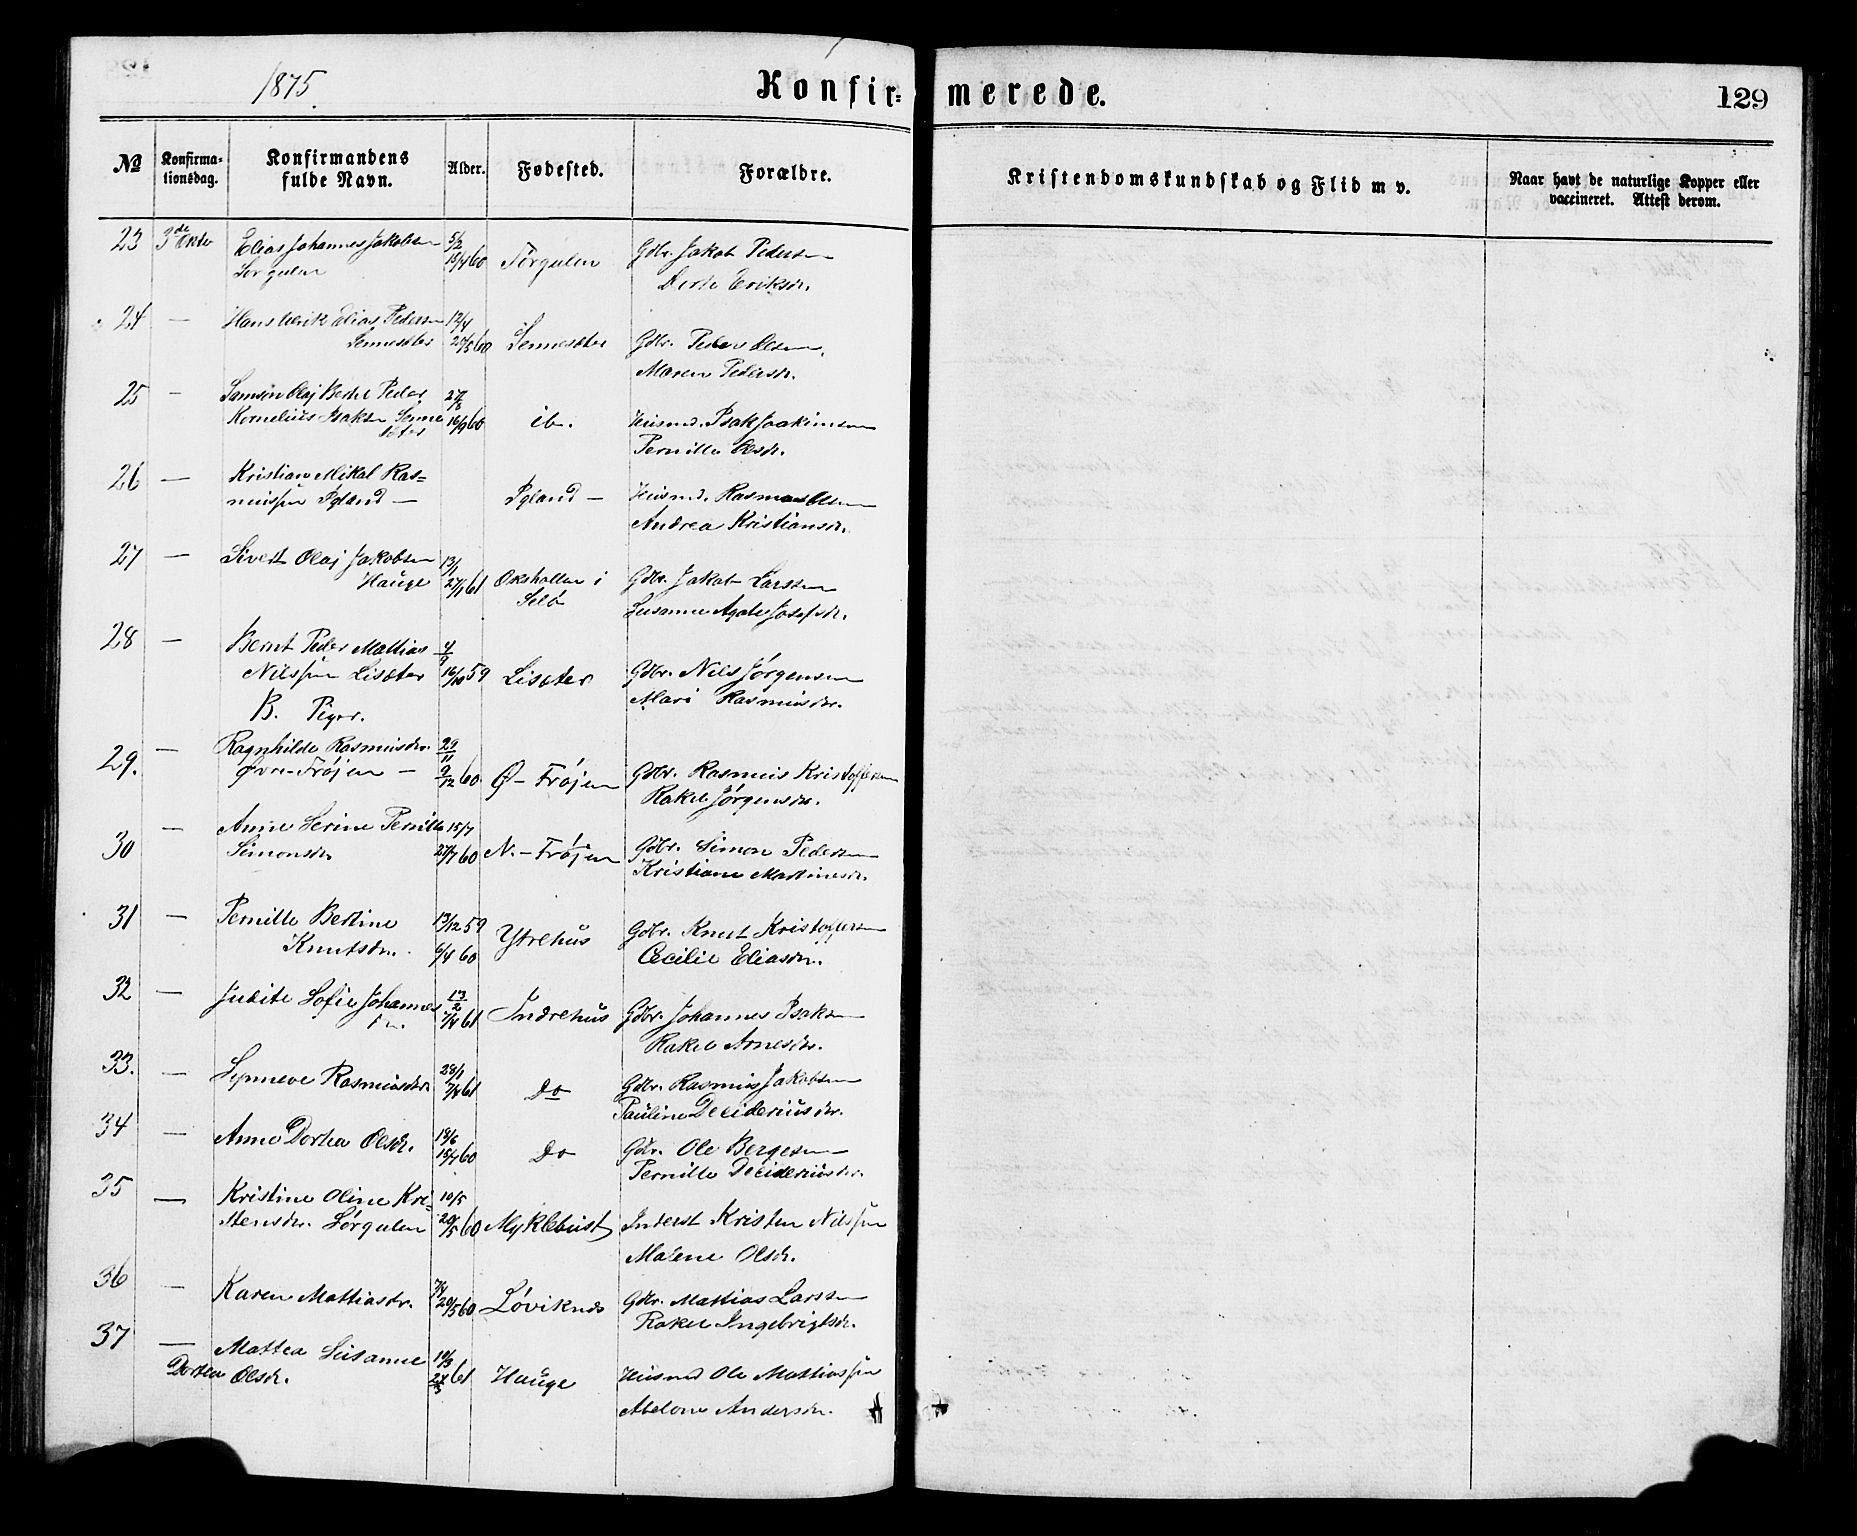 1875.
Konfir=
merede.
129
№
Konfirma-
tionsdag.
Konfirmandens
fulde Navn.
Alder.
Fødested.
Forældre.
Kristendomskundskab og Flid m v.
Naar havt de naturlige Kopper eller
vaccineret. Attest derom.
23 3de Oktbr Elias Johannes Jakobsen 5/2 Gdbr. Jakob Pedersen
Sørgulen 15/4 60 Sørgulen
Dorte Eriksdr.
24 — Hans Henrik Elias Pedersen 12/4
Sennesæter 28/5 60 Sennesæter Gdbr. Peder Olsen,
Maren Pedersdr.
25 — Samson Olaj Bertel Peder 27/8
Kornelius Isaksen Senne 16/9 60 ib. Husmd. Isak Joakimsen
sæter
Pernille Olsdr.
26 — Kristian Mikal Ras=
mussen Igland — Igland — Husmd. Rasmus Olsen
Andrea Kristiansdr.
27 — Sivert Olaj Jakobsen 13/1
Hauge 27/1 61 Oksholten i Gdbr. Jakob Larssen
Selö Susanne Agate Josefsdr.
28 — Bernt Peder Mattias 4/9
Nilssen Lisæter 16/10 59 Lisæter Gdbr. Nils Jørgensen
Mari Rasmusdr.
B. Piger.
29. — Ragnhilde Rasmusdr. 29/11
Øvre-Frøjen — 9/12 60 Ø-Frøjen Gdbr. Rasmus Kristoffersen
Rakel Jørgensdr.
30 — Anne Serine Pernille 15/7
Simonsdr 27/7 60 N.-Frøjen Gdbr. Simon Pedersen
Kristiane Martinusdr.
31 — Pernille Bertine 13/12 59
Knutsdr. 6/4 60 Ytrehus Gdbr. Knut Kristoffersen
Cecilie Eliasdr.
32 — Judite Sofie Johannes 13/2
7/4 61 Indrehus Gdbr. Johannes Isaksen
Rakel Arnesdr.
33. — Synneve Rasmusdr. 28/1
7/4 61 Do Gdbr. Rasmus Jakobsen
Pauline Decideriusdr.
34 — Anne Dortea Olsdr. 18/6
15/7 60 Do Gdbr. Ole Bergesen
Pernille Decideriusdr.
35 — Kristine Oline Kri= 10/5
stensdr. Sørgulen 20/5 60 Myklebust Inderst Kristen Nilssen
Malene Olsdr.
36 — Karen Mattiasdr. 7/4
20/5 60 Løviknes Gdbr. Mattias Larssen
Rakel Ingebrigtsdr.
37 — Mattea Susanne 10/3
Dortea Olsdr. 24/3 61 Hauge Husmd Ole Mattiassen
Abelone Andersdr.